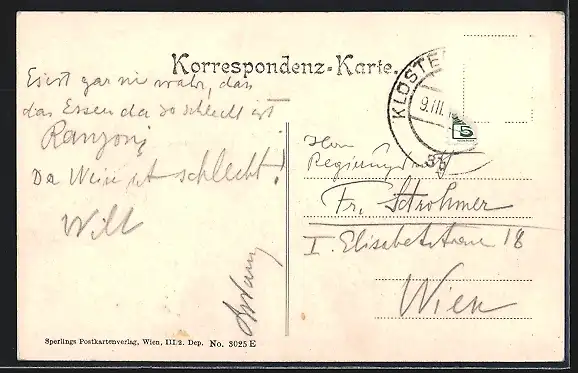 Korrespondenz-Karte.
Es ist gar nie wahr, dass
das Essen da so schlecht ist
Da Wein ist schlecht!
Willt
KLOSTE
9. III.
5
3b
Herr
Regierungsrat
Fr. Strohmer
I. Elisabetstrasse 18
Wien
Sperlings Postkartenverlag, Wien, III.2. Dep. No. 3025 E